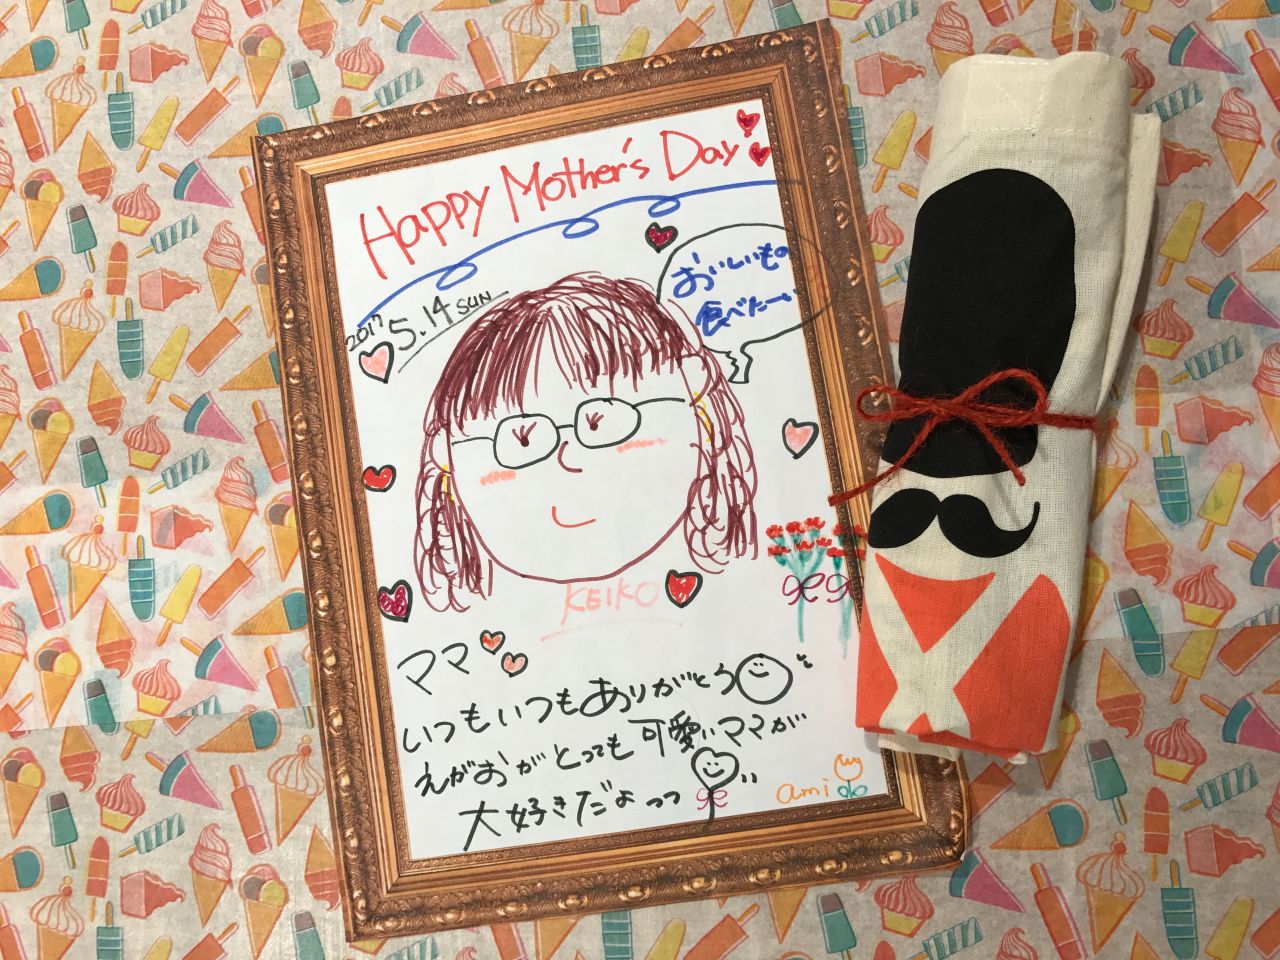 Happy Mother's Day
2017 5.14 SUN
おいしいもの
食べたーい
KEIKO
ママ
いつもいつもありがとう
えがおがとっても可愛いママが
大好きだよっっ
ami